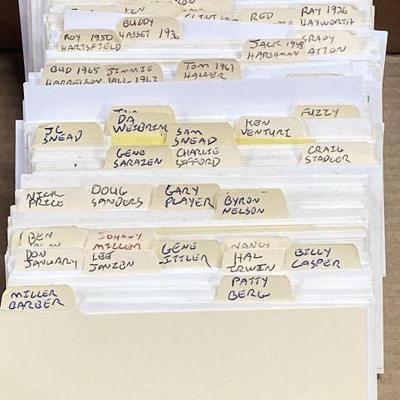 BUDDY
RED
RAY 1926
HAYWORTH
ROY 1950
HARTSFIELD
HASSET 1936
JACK 1948
HARSHMAN
GRADY
HATTON
BUD 1965
HARRELSON
JIMMIE
HALL 1963
TOM 1961
HALLER
FUZZY
JC
SNEAD
DA
WEIBRING
SAM
SNEAD
KEN
VENTURI
GENE
SARAZEN
CHARLIE
SIFFORD
CRAIG
STADLER
NICK
PRICE
DOUG
SANDERS
GARY
PLAYER
BYRON
NELSON
BEN
JOHNNY
MILLER
NANCY
DON
JANUARY
LEE
JANZEN
GENE
LITTLER
HAL
IRWIN
BILLY
CASPER
MILLER
BARBER
PATTY
BERG